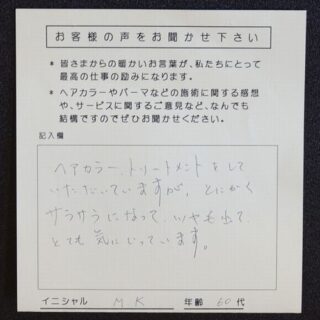 お客様の声をお聞かせ下さい
* 皆さまからの暖かいお言葉が、私たちにとって
最高の仕事の励みになります。
* ヘアカラーやパーマなどの施術に関する感想
や、サービスに関するご意見など、なんでも
結構ですのでぜひお聞かせください。
記入欄
ヘアカラー、トリートメントをして
いただいていますが、とにかく
サラサラになって、ツヤも出て、
とても気に入っています。
イニシャル MK 年齢 60代